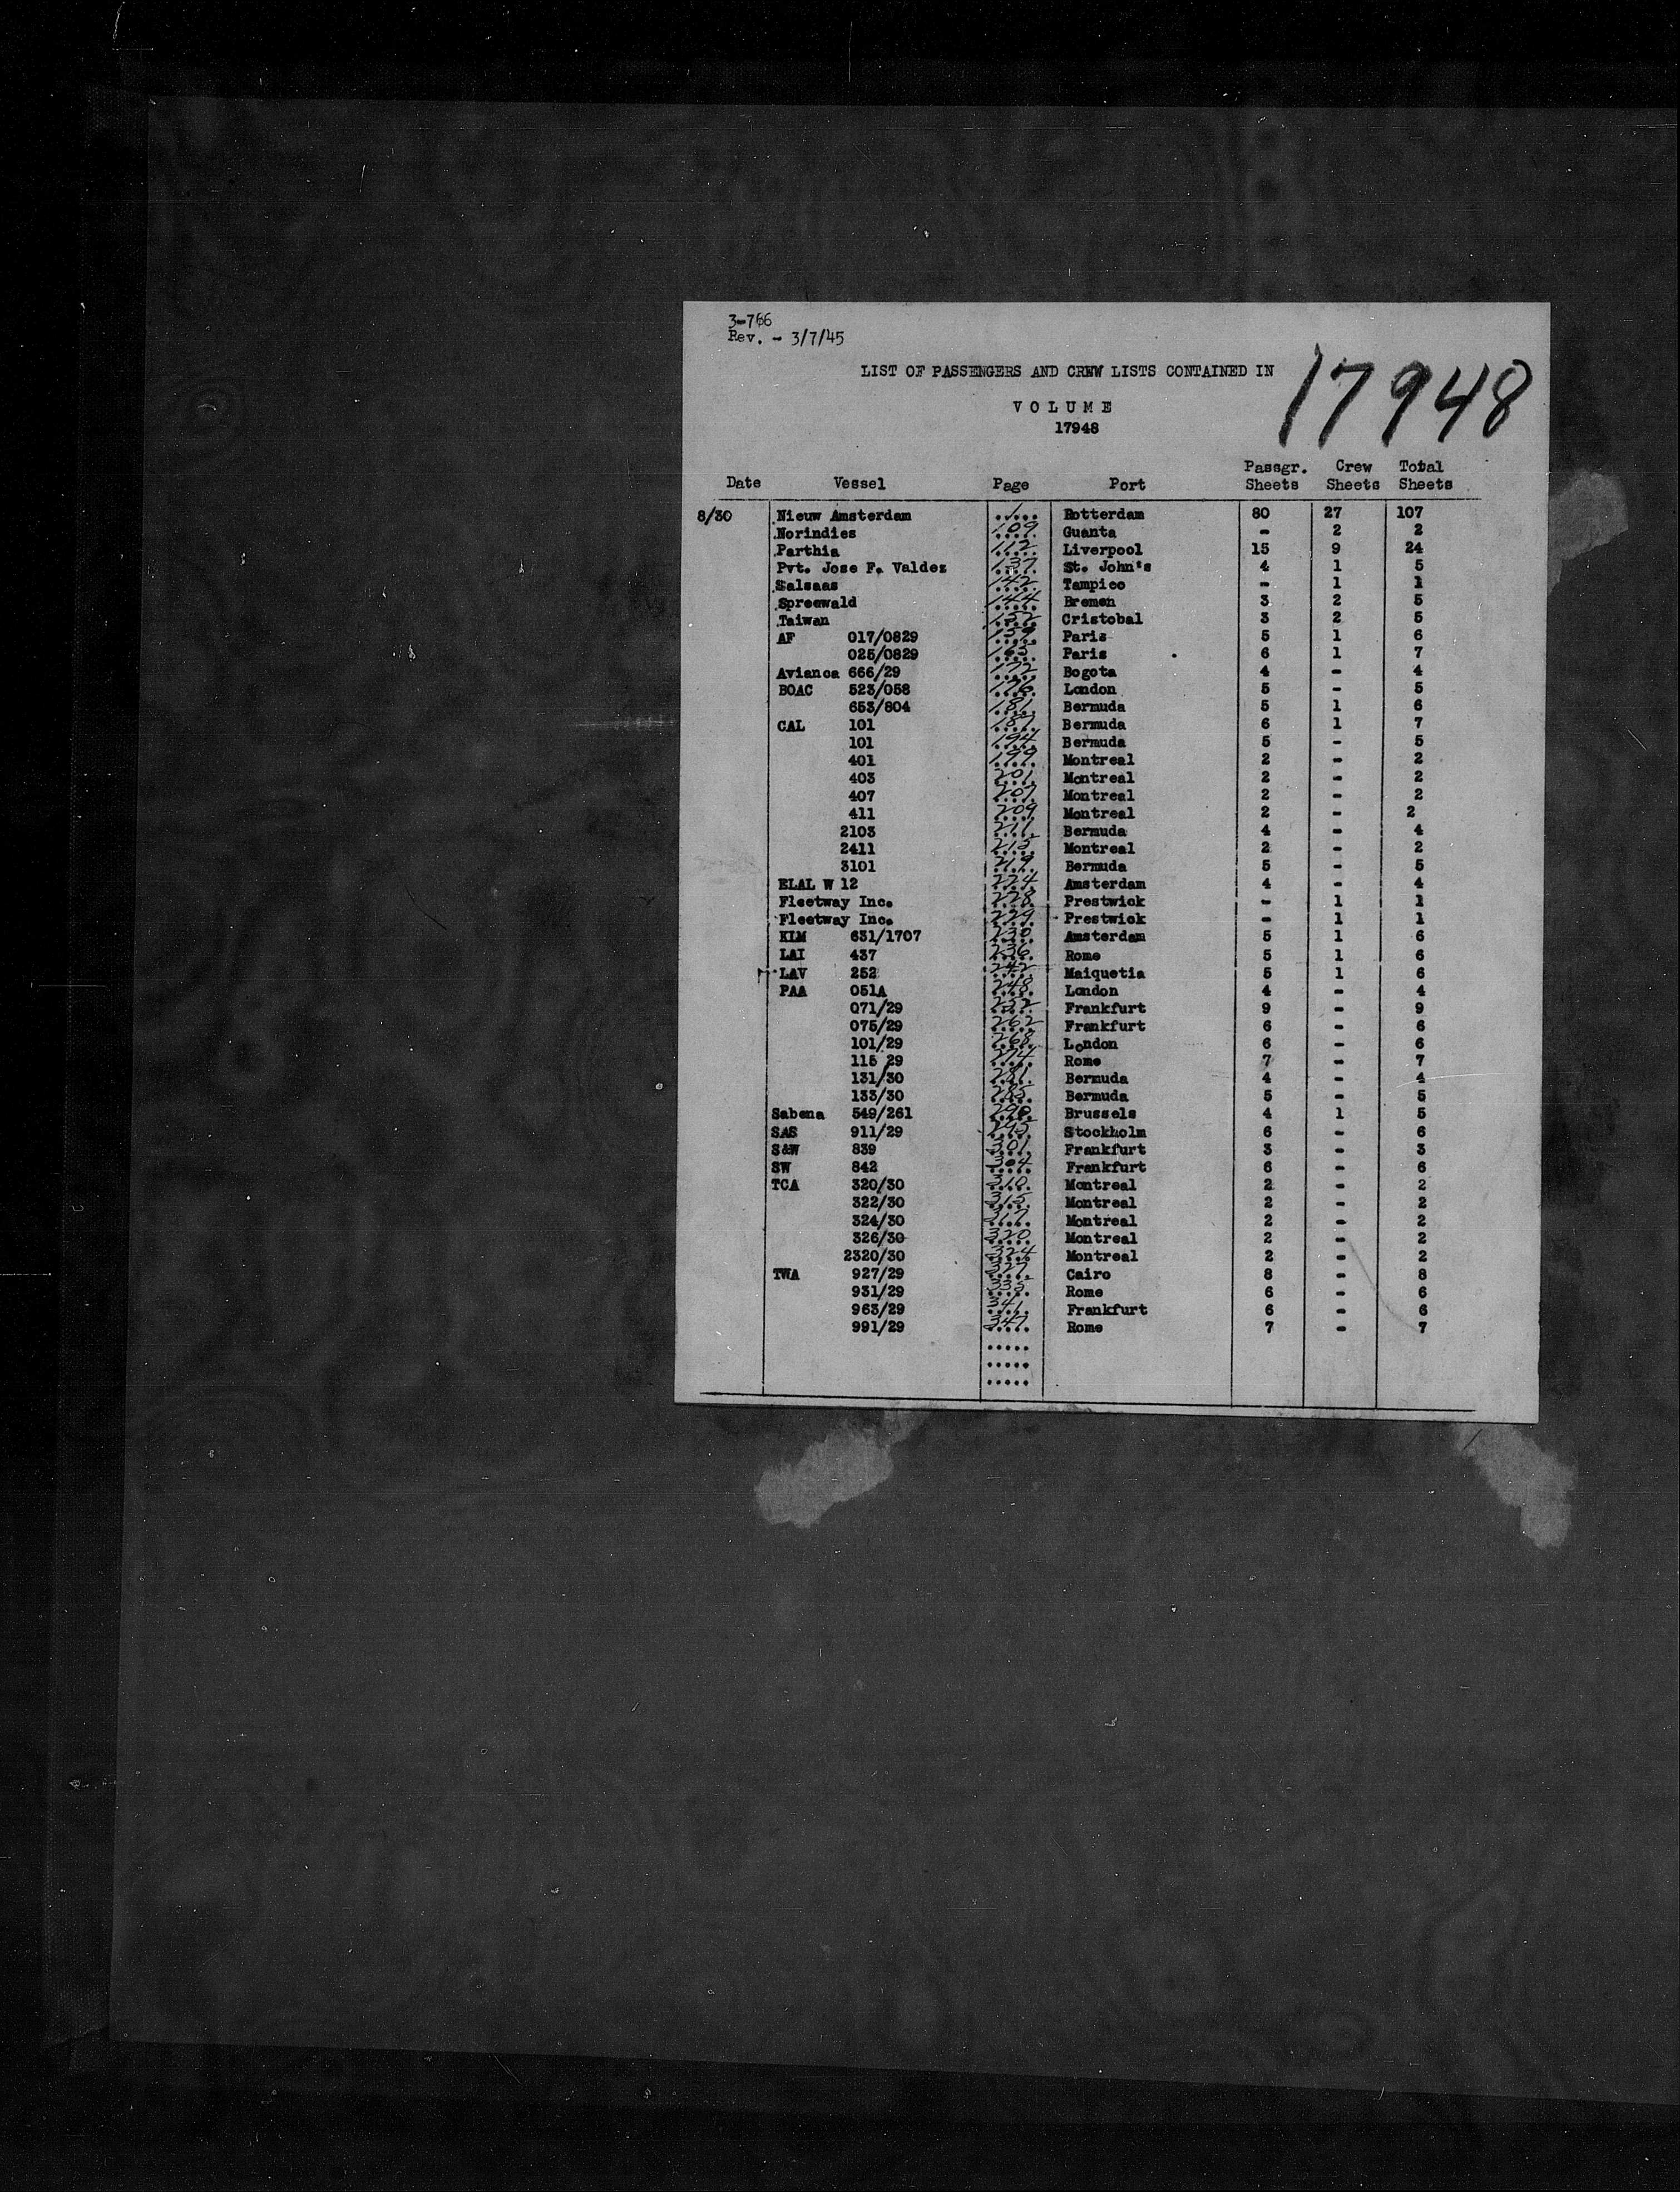 3-766
Rev. - 3/7/45
LIST OF PASSENGERS AND CREW LISTS CONTAINED IN
17948
VOLUME
17948
Date Vessel Page Port Passgr. Sheets Crew Sheets Total Sheets
8/30 Nieuw Amsterdam 1 Rotterdam 80 27 107
Norindies 109 Guanta - 2 2
Parthia 112 Liverpool 15 9 24
Pvt. Jose F. Valdez 137 St. John's 4 1 5
Salsaas 142 Tampico - 1 1
Spreewald 144 Bremen 3 2 5
Taiwan 152 Cristobal 3 2 5
AF 017/0829 159 Paris 5 1 6
025/0829 165 Paris 6 1 7
Avianca 666/29 172 Bogota 4 - 4
BOAC 523/058 176 London 5 - 5
653/804 181 Bermuda 5 1 6
CAL 101 187 Bermuda 6 1 7
101 194 Bermuda 5 - 5
401 199 Montreal 2 - 2
403 201 Montreal 2 - 2
407 207 Montreal 2 - 2
411 209 Montreal 2 - 2
2103 211 Bermuda 4 - 4
2411 215 Montreal 2 - 2
3101 219 Bermuda 5 - 5
ELAL W 12 224 Amsterdam 4 - 4
Fleetway Inc. 228 Prestwick - 1 1
Fleetway Inc. 229 Prestwick - 1 1
KLM 631/1707 230 Amsterdam 5 1 6
LAI 437 236 Rome 5 1 6
LAV 252 242 Maiquetia 5 1 6
PAA 051A 248 London 4 - 4
071/29 252 Frankfurt 9 - 9
075/29 262 Frankfurt 6 - 6
101/29 268 London 6 - 6
115 29 274 Rome 7 - 7
131/30 281 Bermuda 4 - 4
133/30 285 Bermuda 5 - 5
Sabena 549/261 290 Brussels 4 1 5
SAS 911/29 295 Stockholm 6 - 6
S&W 839 301 Frankfurt 3 - 3
SW 842 304 Frankfurt 6 - 6
TCA 320/30 310 Montreal 2 - 2
322/30 315 Montreal 2 - 2
324/30 317 Montreal 2 - 2
326/30 320 Montreal 2 - 2
2320/30 324 Montreal 2 - 2
TWA 927/29 327 Cairo 8 - 8
931/29 335 Rome 6 - 6
963/29 341 Frankfurt 6 - 6
991/29 347 Rome 7 - 7